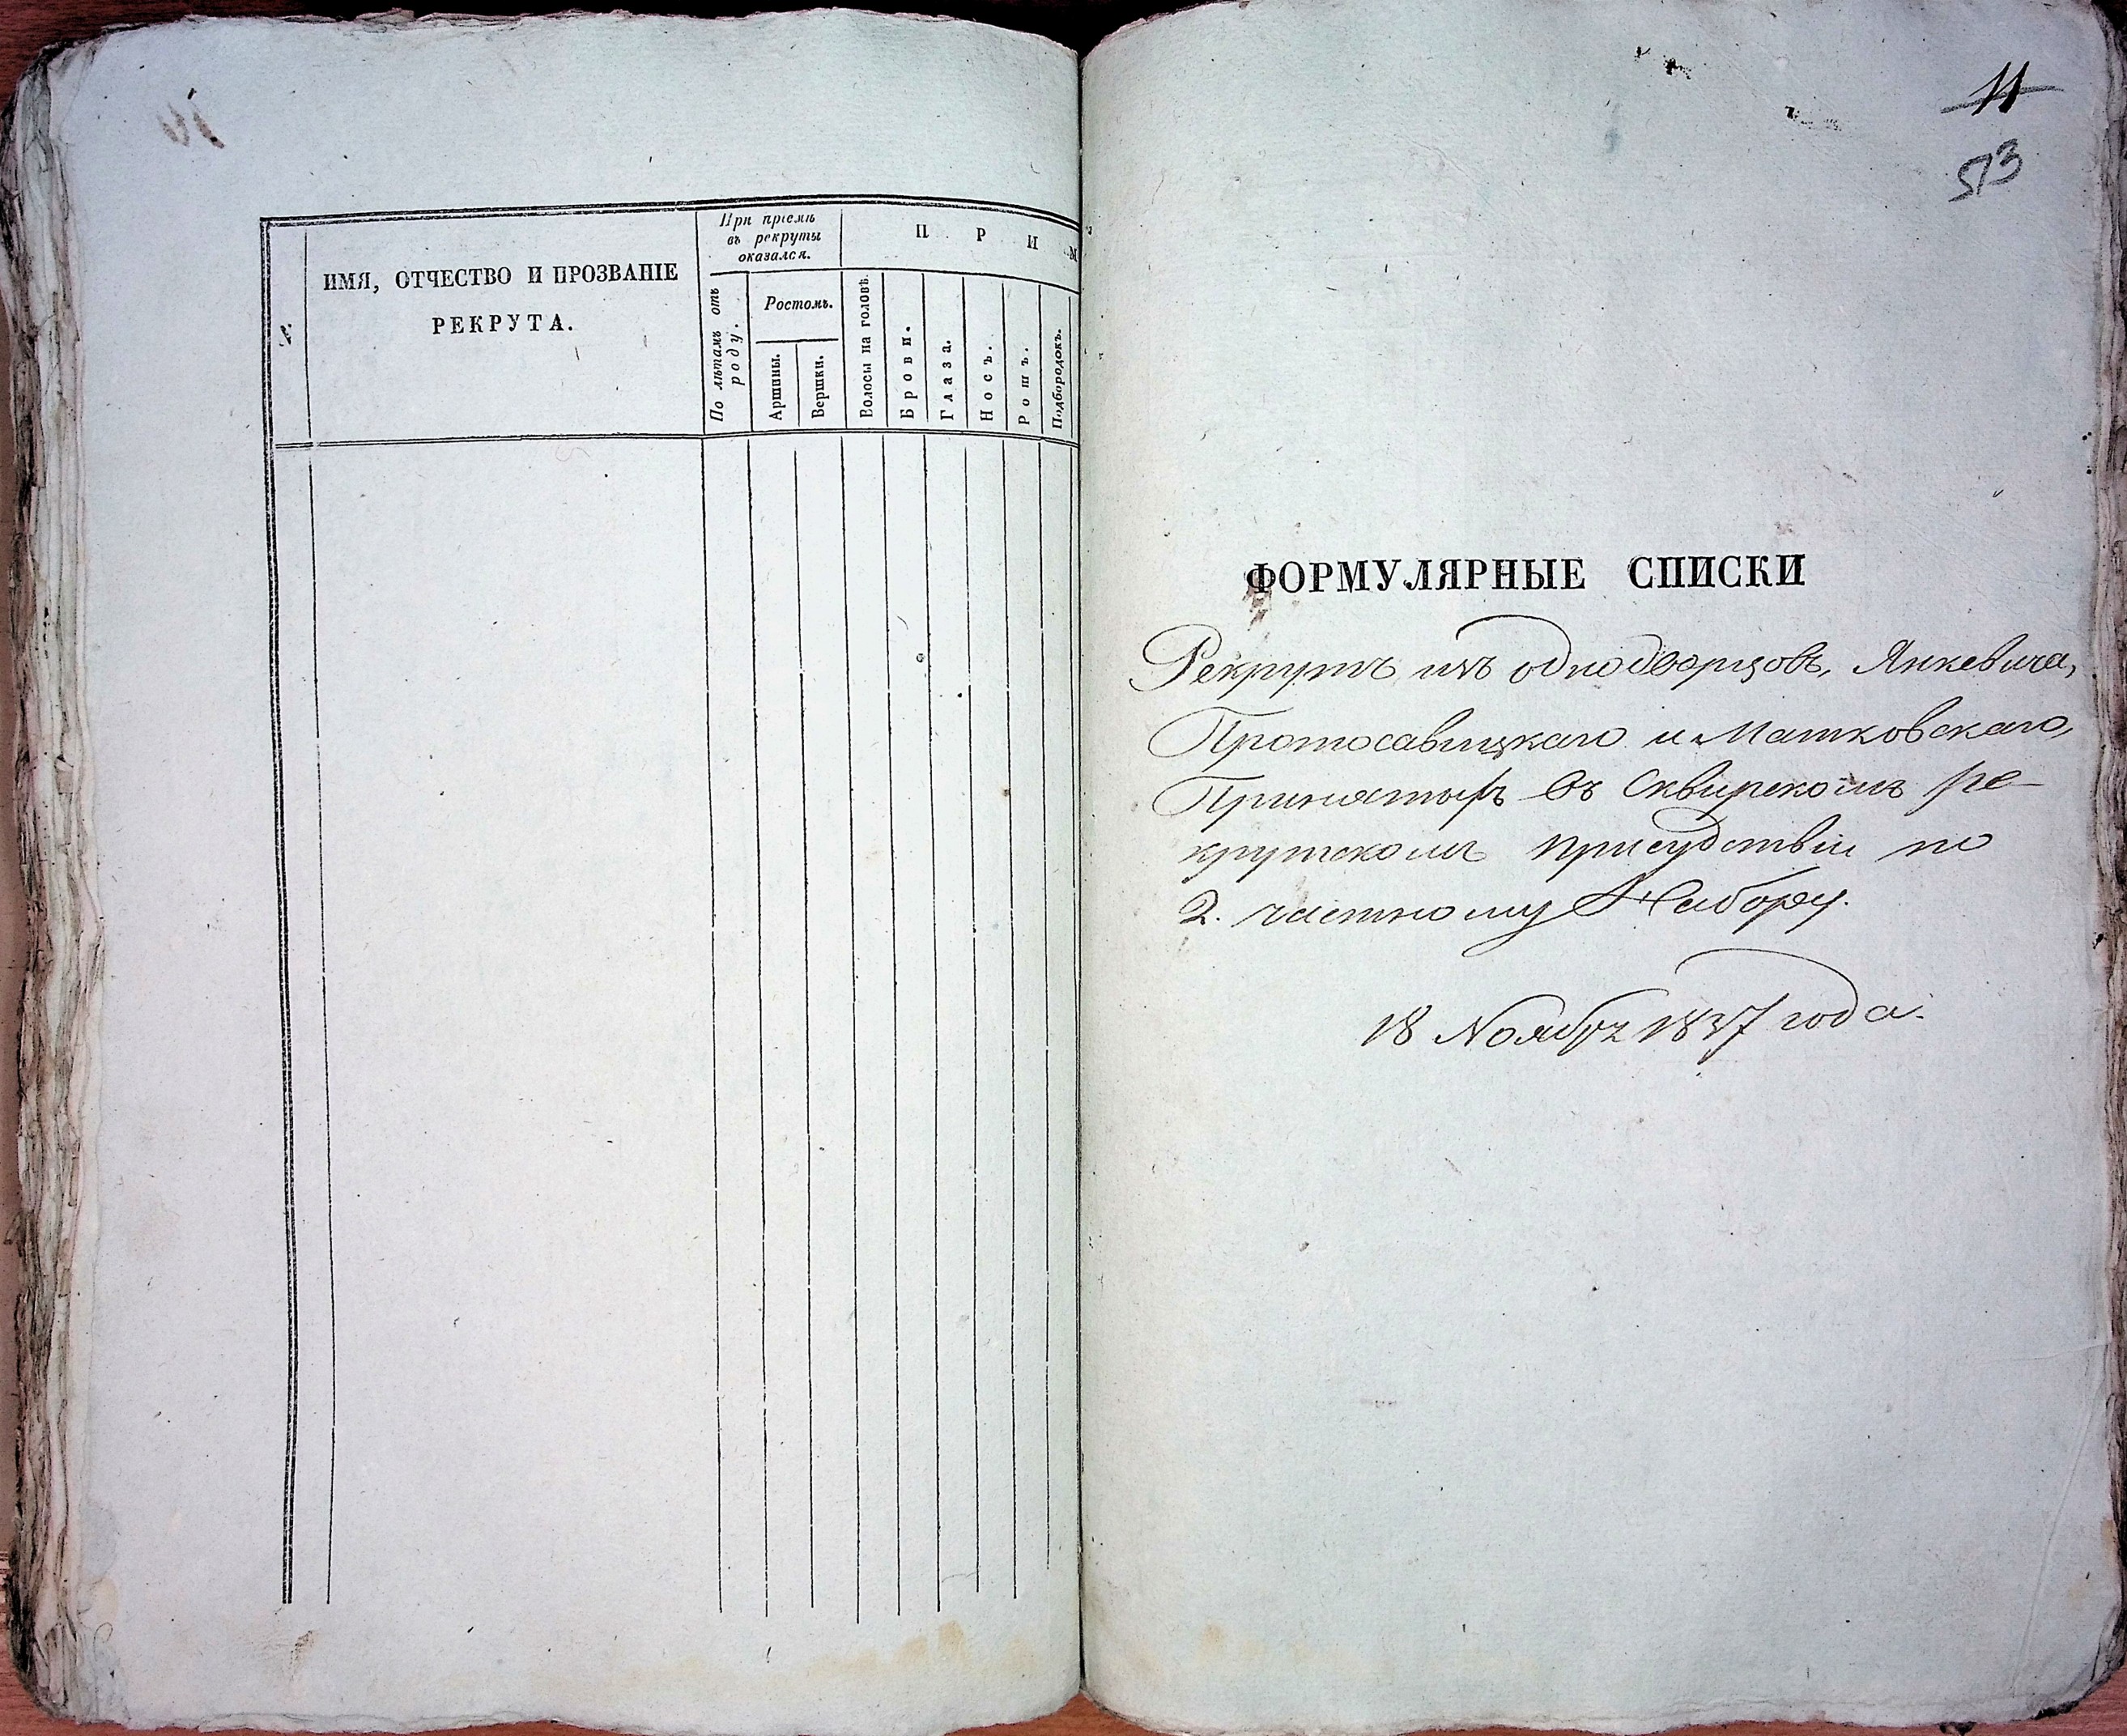 ИМЯ, ОТЧЕСТВО И ПРОЗВАНІЕ
РЕКРУТА.
При пріемѣ
въ рекруты
оказался.
По лѣтамъ отъ
роду.
Ростомъ.
Аршины.
Вершки.
П Р И М
Волосы на головѣ.
Брови.
Глаза.
Носъ.
Ротъ.
Подбородокъ.
11
513
ФОРМУЛЯРНЫЕ СПИСКИ
Рекрутъ изъ однодворцовъ, Янкевича,
Протосавицкаго и Матковскаго,
Принятыхъ въ Сквирскомъ ре-
крутскомъ присудствіи по
2. частному Набору.
18 Ноября 1837 года.